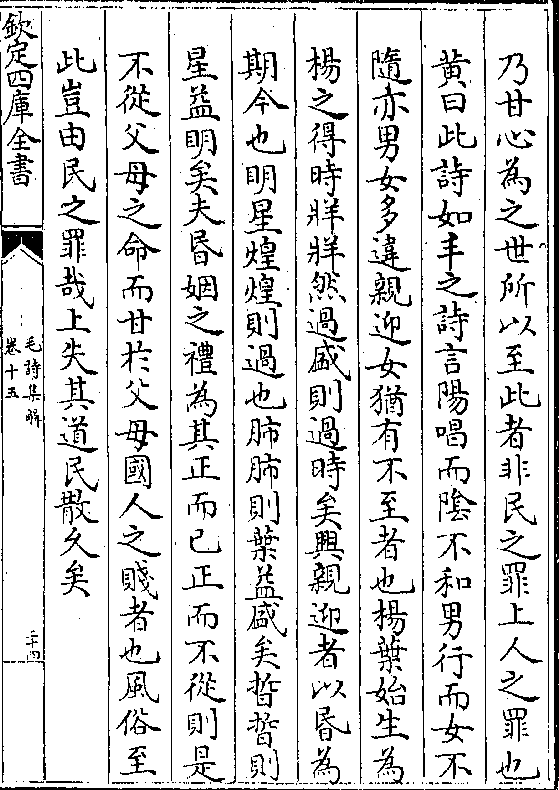 乃甘心為之世所以至此者非民之罪上人之罪也
黄曰此詩如丰之詩言陽唱而陰不和男行而女不
隨亦男女多違親迎女猶有不至者也楊葉始生為
楊之得時牂牂然過盛則過時矣興親迎者以昏為
期今也明星煌煌則過也肺肺則葉益盛矣晢晢則
星益明矣夫昏姻之禮為其正而已正而不從則是
不從父母之命而甘於父母國人之賤者也風俗至
此豈由民之罪哉上失其道民散乆矣
欽定四庫全書
毛詩集解
卷十五
二十四